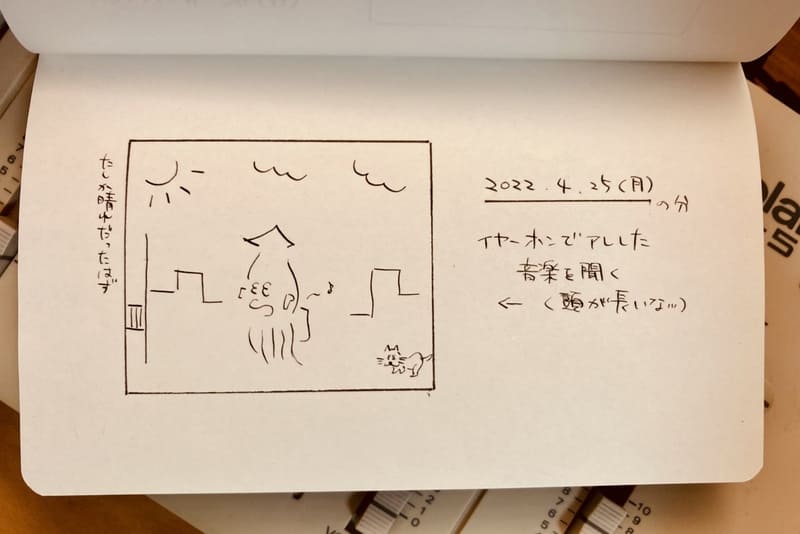 たしか晴れだったはず
2022.4.25(月)
の分
イヤーホンでアレした
音楽を聞く
← (頭が長いな…)